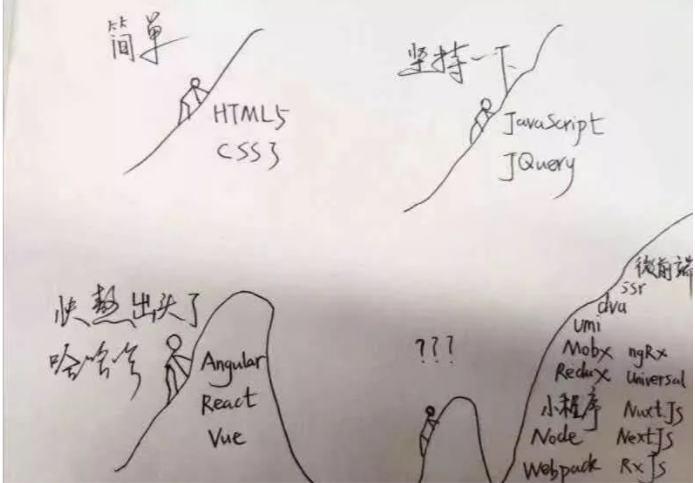 简单
HTML5
CSS3
坚持一下
JavaScript
JQuery
快熬出头了
哈哈哈
Angular
React
Vue
???
微前端
ssr
dva
umi
Mobx ngRx
Redux Universal
小程序 Nuxt.Js
Node NextJs
Webpack RxJs